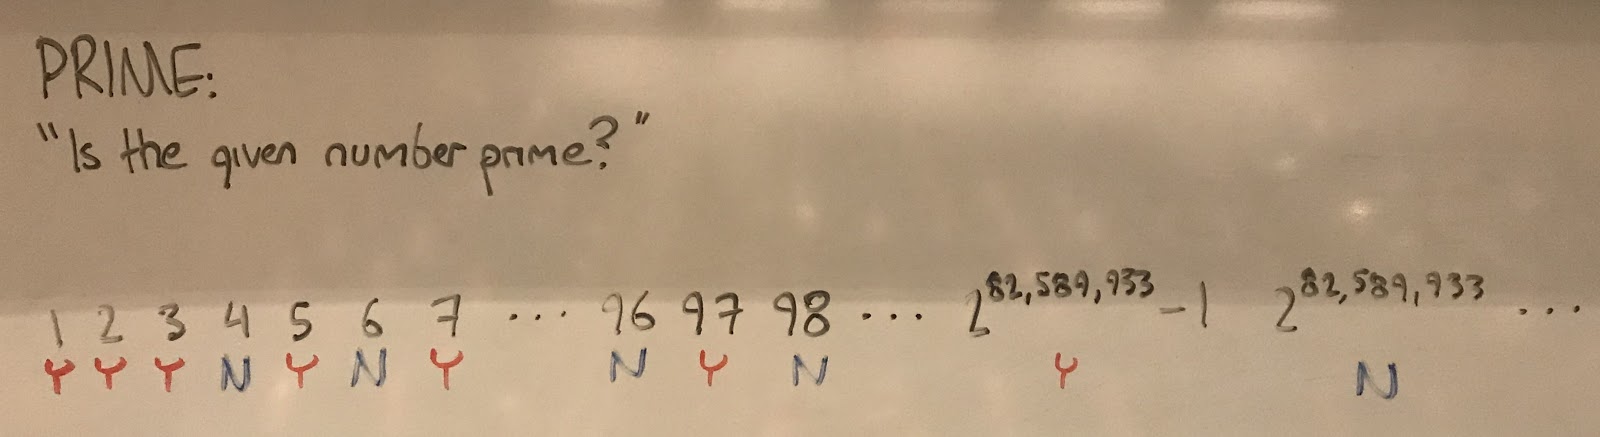 PRIME:
"Is the given number prime?"
1 2 3 4 5 6 7 ... 96 97 98 ... 2^82,589,933 -1 2^82,589,933 ...
Y Y Y N Y N Y N Y N Y N